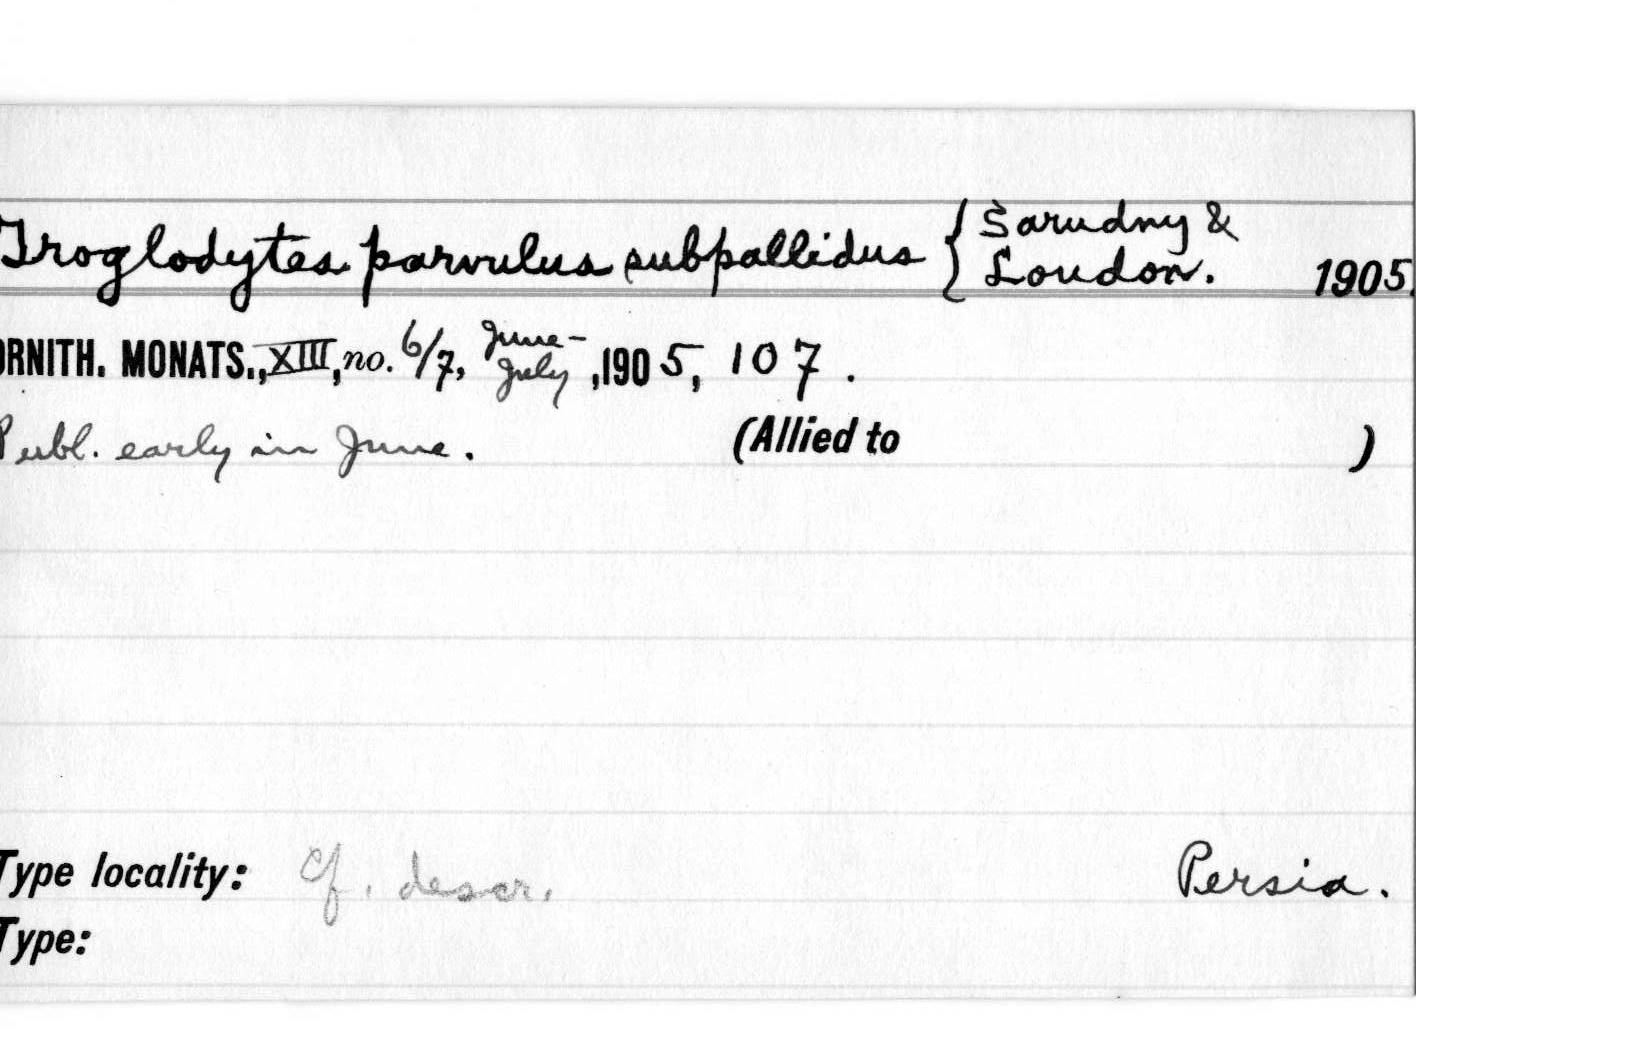 Troglodytes parvulus subpallidus { Sarudny &
Loudon. 1905.
ORNITH. MONATS., XIII, no. 6/7, June-
July, 1905, 107.
Publ. early in June. (Allied to )
Type locality: Cf. descr. Persia.
Type: